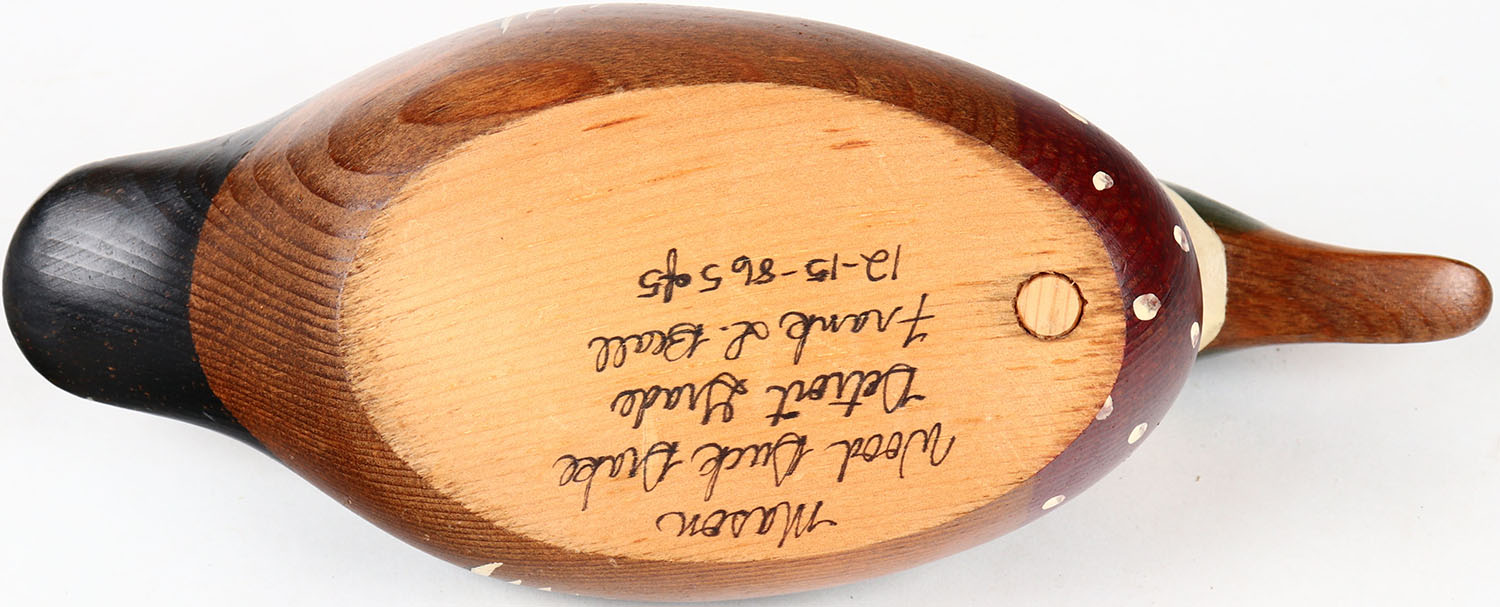 Mason
Wood Duck Drake
Detroit Grade
Frank L. Beall
12-15-86 5 of 5